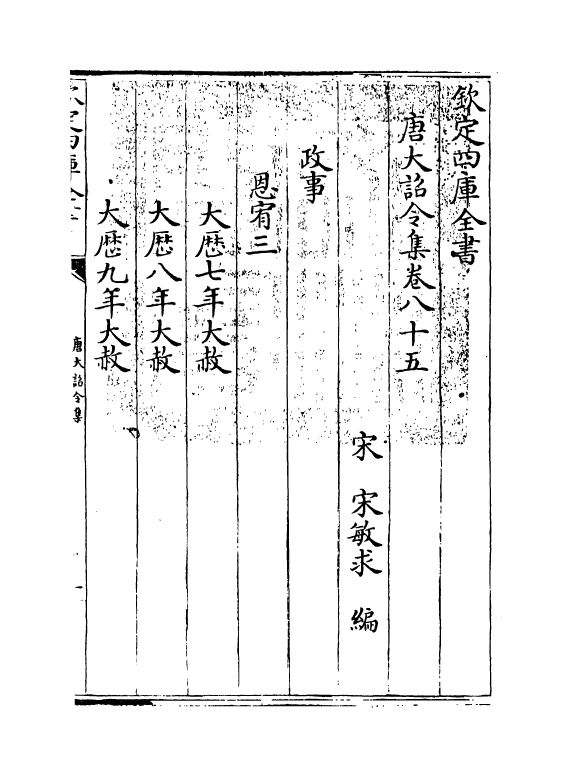 欽定四庫全書
唐大詔令集卷八十五
宋 宋敏求 編
政事
恩宥三
大歴七年大赦
大歴八年大赦
大歴九年大赦
唐大詔令集
一